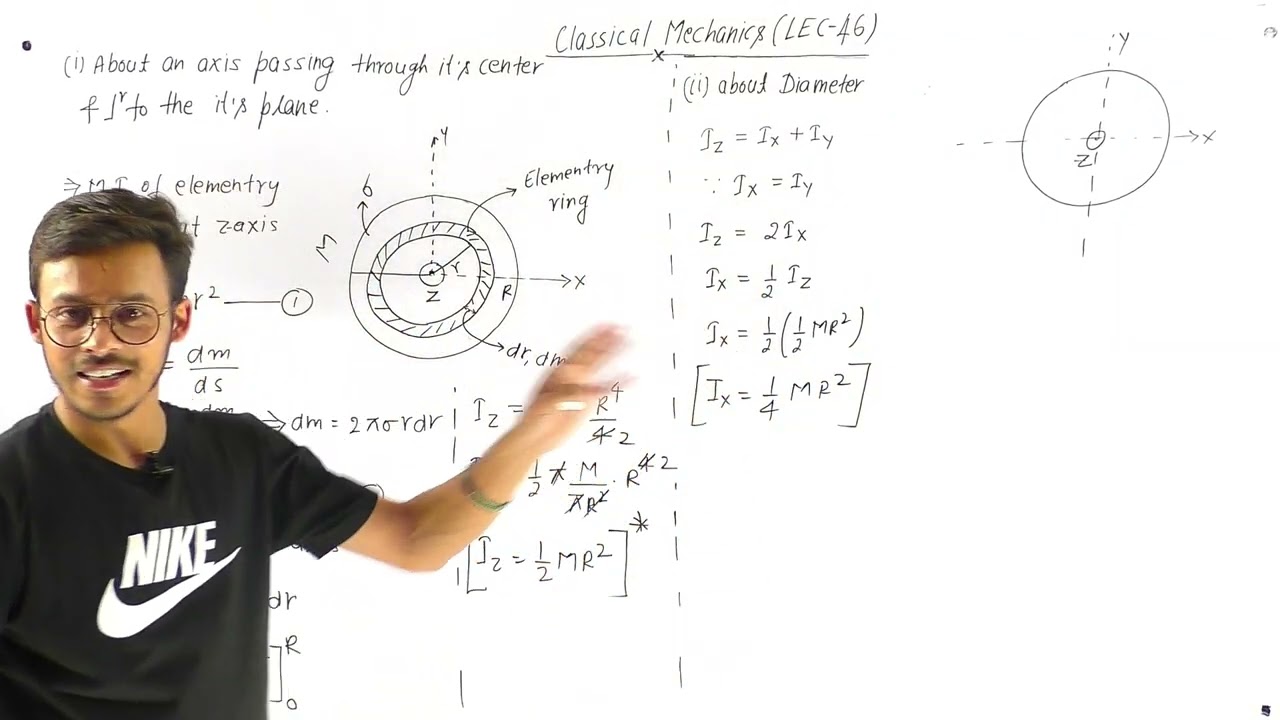 Classical Mechanics (LEC-46)
(i) About an axis passing through it's center
& ⊥r to the it's plane.
⇒ M.I of elementry
zaxis
r² —— ①
= dm/ds
⇒ dm = 2πσrdr
dr
R
0
σ
M
Y
Elementry
ring
r
X
Z
R
dr, dm
I_Z = R⁴/4 2
1/2 π M/πR² · R⁴ 2
[I_Z = 1/2 MR²]*
(ii) about Diameter
I_Z = I_X + I_Y
∵ I_X = I_Y
I_Z = 2I_X
I_X = 1/2 I_Z
I_X = 1/2 (1/2 MR²)
[I_X = 1/4 MR²]
Y
X
Z
NIKE